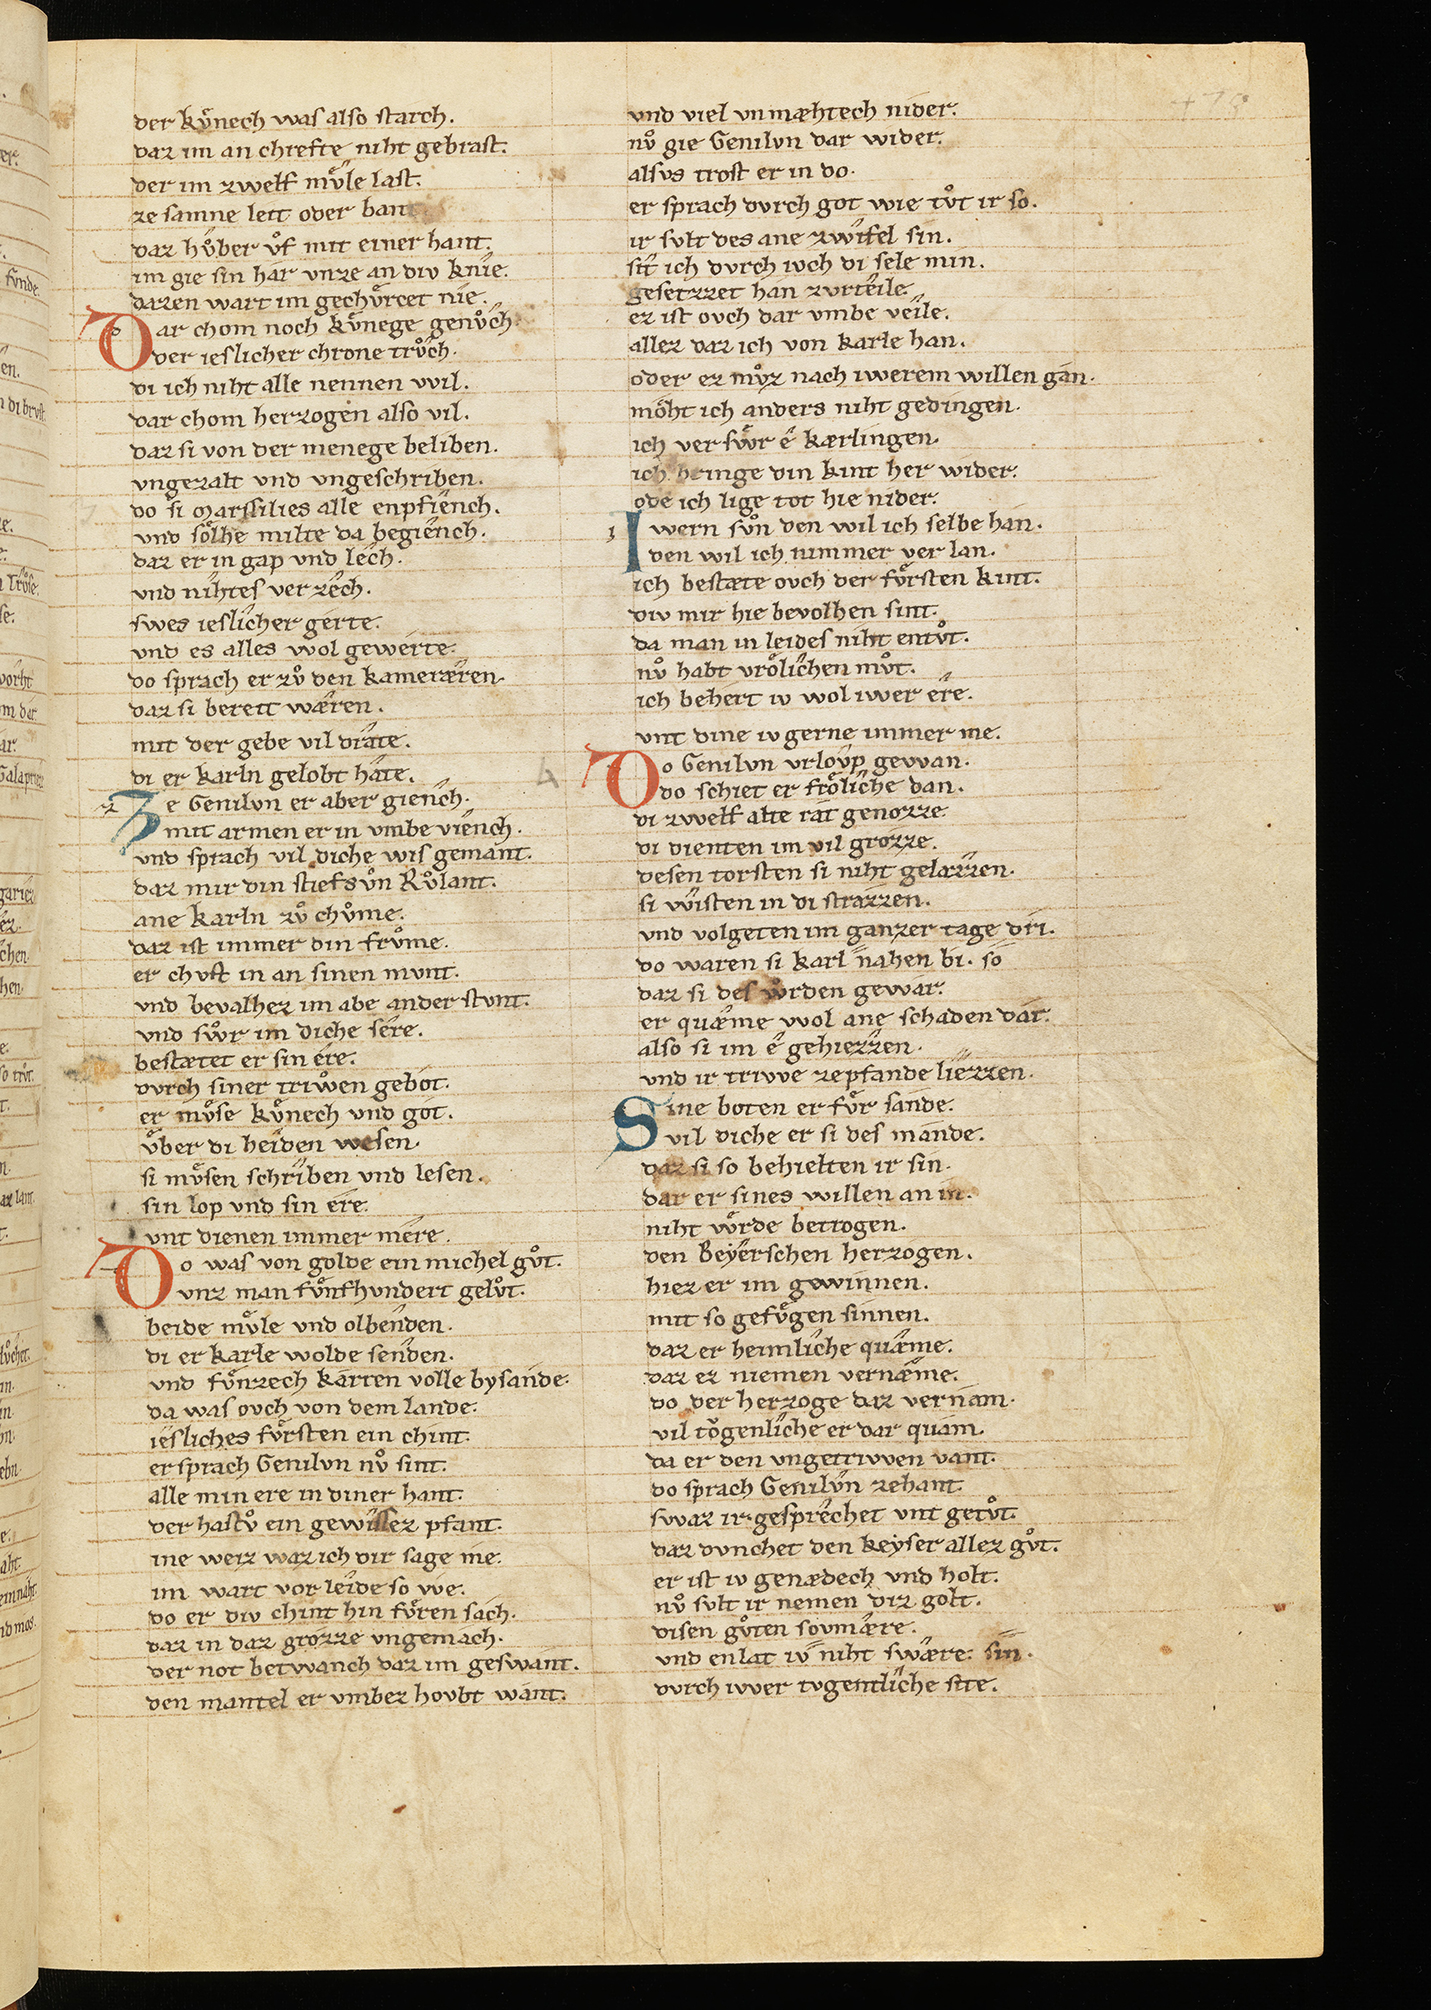 der kuͤnech was also starch.
daz im an chrefte niht gebrast.
der im zwelf muͤle last.
ze samne leit oder bant
daz huͦber uͦf mit einer hant.
im gie sin har vnze an div knîe.
dazen wart im gechuͤrcet nîe.
Dar chom noch kuͤnege genuͦch
der ieslicher chrone truͦch.
di ich niht alle nennen wil.
dar chom herzogen also vil.
daz si von der menege beliben.
vngezalt vnd vngeschriben.
do si marssilies alle enpfîench.
vnd soͤlhe milte da begîench.
daz er in gap vnd lêch.
vnd nihtes verzêch.
swes ieslicher gerte.
vnd es alles wol gewerte.
do sprach er zuͦ den kameræren.
daz si bereit wæren.
mit der gebe vil drâte.
di er karln gelobt hâte.
Ze Genilvn er aber giench.
mit armen er in vmbe viench.
vnd sprach vil diche wis gemant.
daz mir din stiefsuͦn Ruͦlant.
ane karln zuͦ chuͦme.
daz ist immer din fruͦme.
er chvst in an sinen mvnt.
vnd bevalhez im abe ander stvnt.
vnd swͦr im diche sêre.
bestætet er sin êre.
dvrch siner triwͦen gebot.
er muͤse kuͤnech vnd got.
uͤber di heiden wesen.
si muͤsen schriben vnd lesen.
sin lop vnd sin ere.
vnt dienen immer mêre.
Do was von golde ein michel guͦt.
vnz man fuͤnfhvndert geluͦt.
beide muͤle vnd olbenden.
di er karle wolde senden.
vnd fuͤnzech karren volle bysande.
da was ovch von dem lande.
iesliches fuͤrsten ein chint.
er sprach Genilvn nuͦ sint.
alle min ere in diner hant.
der hastuͦ ein gewissez pfant.
ine weiz waz ich dir sage me.
im wart vor leide so we.
do er div chint hin fuͤren sach.
daz in daz grozze vngemach.
der not betwanch daz im geswant.
den mantel er vmbez hovbt want.
vnd viel vnmæhtech nider.
nuͦ gie Genilvn dar wider.
alsvs trost er in do.
er sprach dvrch got wie tuͦt ir so.
ir svlt des ane zwifel sin.
sît ich dvrch ivch di sele min.
gesetzzet han zvrteile.
ez ist ovch dar vmbe veile.
allez daz ich von karle han.
oder ez muͦz nach iwerem willen gân.
moͤht ich anders niht gedingen.
ich verswͤr ê kærlingen.
ich bringe din kint her wider.
ode ich lige tot hie nider.
Iwern suͦn den wil ich selbe hân.
den wil ich nimmer ver lan.
ich bestæte ovch der fuͤrsten kint.
div mir hie bevolhen sint.
da man in leides niht entuͦt.
nuͦ habt vroͤlichen muͦt.
ich behert iv wol iwer êre.
vnt dine iv gerne immer me.
Do Genilvn vrlovp gewan.
do schiet er froͤliche dan.
di zwelf alte rat genozze.
di dienten im vil grozze.
desen torsten si niht gelæzzen.
si wisten in di strâzzen.
vnd volgeten im ganzer tage dri.
do waren si karl nahen bi. so
daz si des wͦrden gewâr.
er quæme wol ane schaden dar.
also si im ê gehiezzen.
vnd ir triwe zepfande liezzen.
Sine boten er fuͤr sande.
vil diche er si des mande.
daz si so behielten ir sin.
daz er sines willen an in.
niht wͤrde betrogen.
den Beyerschen herzogen.
hiez er im gewinnen.
mit so gefuͤgen sinnen.
daz er heimliche quæme.
daz ez niemen vernæme.
do der herzoge daz vernam.
vil toͮgenliche er dar quam.
da er den vngetriwen vant.
do sprach Genilvn zehant.
swaz ir gesprechet vnt getuͦt.
daz dvnchet den keyser allez guͦt.
er ist iv genædech vnd holt.
nuͦ svlt ir nemen diz golt.
disen guͦten sovmære.
vnd enlat iv niht swære. sin.
dvrch iwer tvgentliche site.